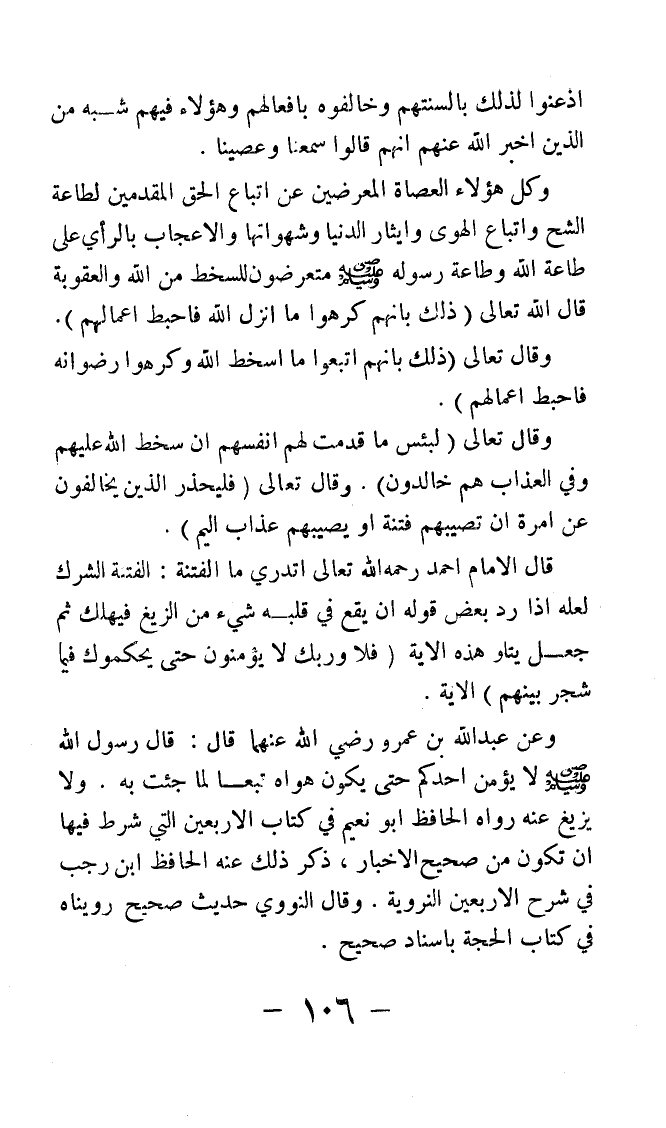 اذعنوا لذلك بالسنتهم وخالفوه بافعالهم وهؤلاء فيهم شبه من
الذين اخبر الله عنهم انهم قالوا سمعنا وعصينا .
وكل هؤلاء العصاة المعرضين عن اتباع الحق المقدمين لطاعة
الشح واتباع الهوى وايثار الدنيا وشهواتها والاعجاب بالرأي على
طاعة الله وطاعة رسوله ﷺ متعرضون للسخط من الله والعقوبة
قال الله تعالى ( ذلك بانهم كرهوا ما انزل الله فاحبط اعمالهم ).
وقال تعالى (ذلك بانهم اتبعوا ما اسخط الله وكرهوا رضوانه
فاحبط اعمالهم ) .
وقال تعالى ( لبئس ما قدمت لهم انفسهم ان سخط الله عليهم
وفي العذاب هم خالدون) . وقال تعالى ( فليحذر الذين يخالفون
عن امرة ان تصيبهم فتنة او يصيبهم عذاب اليم ) .
قال الامام احمد رحمه الله تعالى اتدري ما الفتنة : الفتنة الشرك
لعله اذا رد بعض قوله ان يقع في قلبه شيء من الزيغ فيهلك ثم
جعل يتاو هذه الاية ( فلا وربك لا يؤمنون حتى يحكموك فيما
شجر بينهم ) الاية .
وعن عبدالله بن عمرو رضي الله عنهما قال : قال رسول الله
ﷺ لا يؤمن احدكم حتى يكون هواه تبعا لما جئت به . ولا
يزيغ عنه رواه الحافظ ابو نعيم في كتاب الاربعين التي شرط فيها
ان تكون من صحيح الاخبار ، ذكر ذلك عنه الحافظ ابن رجب
في شرح الاربعين النروية . وقال النووي حديث صحيح رويناه
في كتاب الحجة باسناد صحيح .
– ١٠٦ –